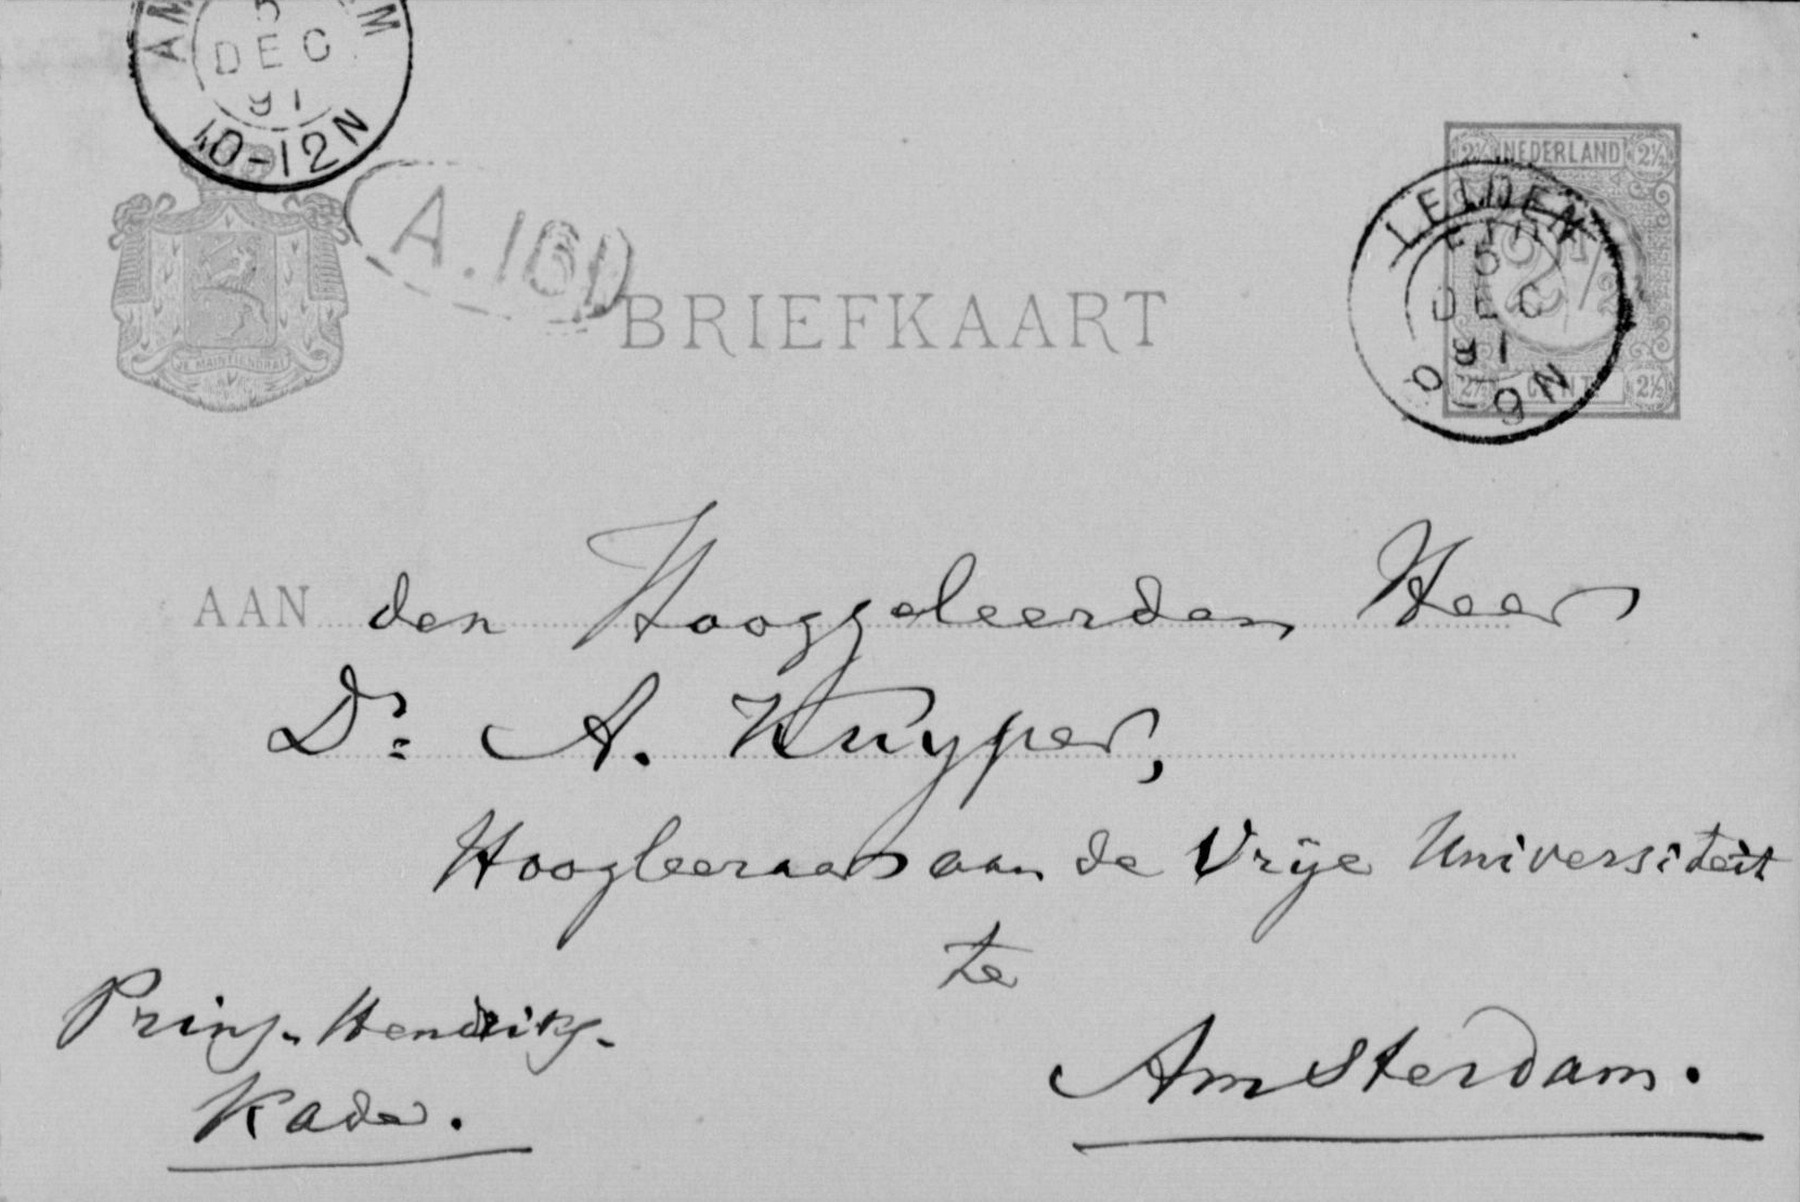 AM
M
5
DEC
91
10-12N
A.161
JE MAINTIENDRAI
BRIEFKAART
2½ NEDERLAND 2½
2½
2½ CENT 2½
LEIDEN
5
DEC
91
-9N
AAN den Hooggeleerden Heer
Dr. A. Kuyper,
Hoogleeraar aan de Vrije Universiteit
te
Amsterdam.
Prins-Hendriks-
Kade.